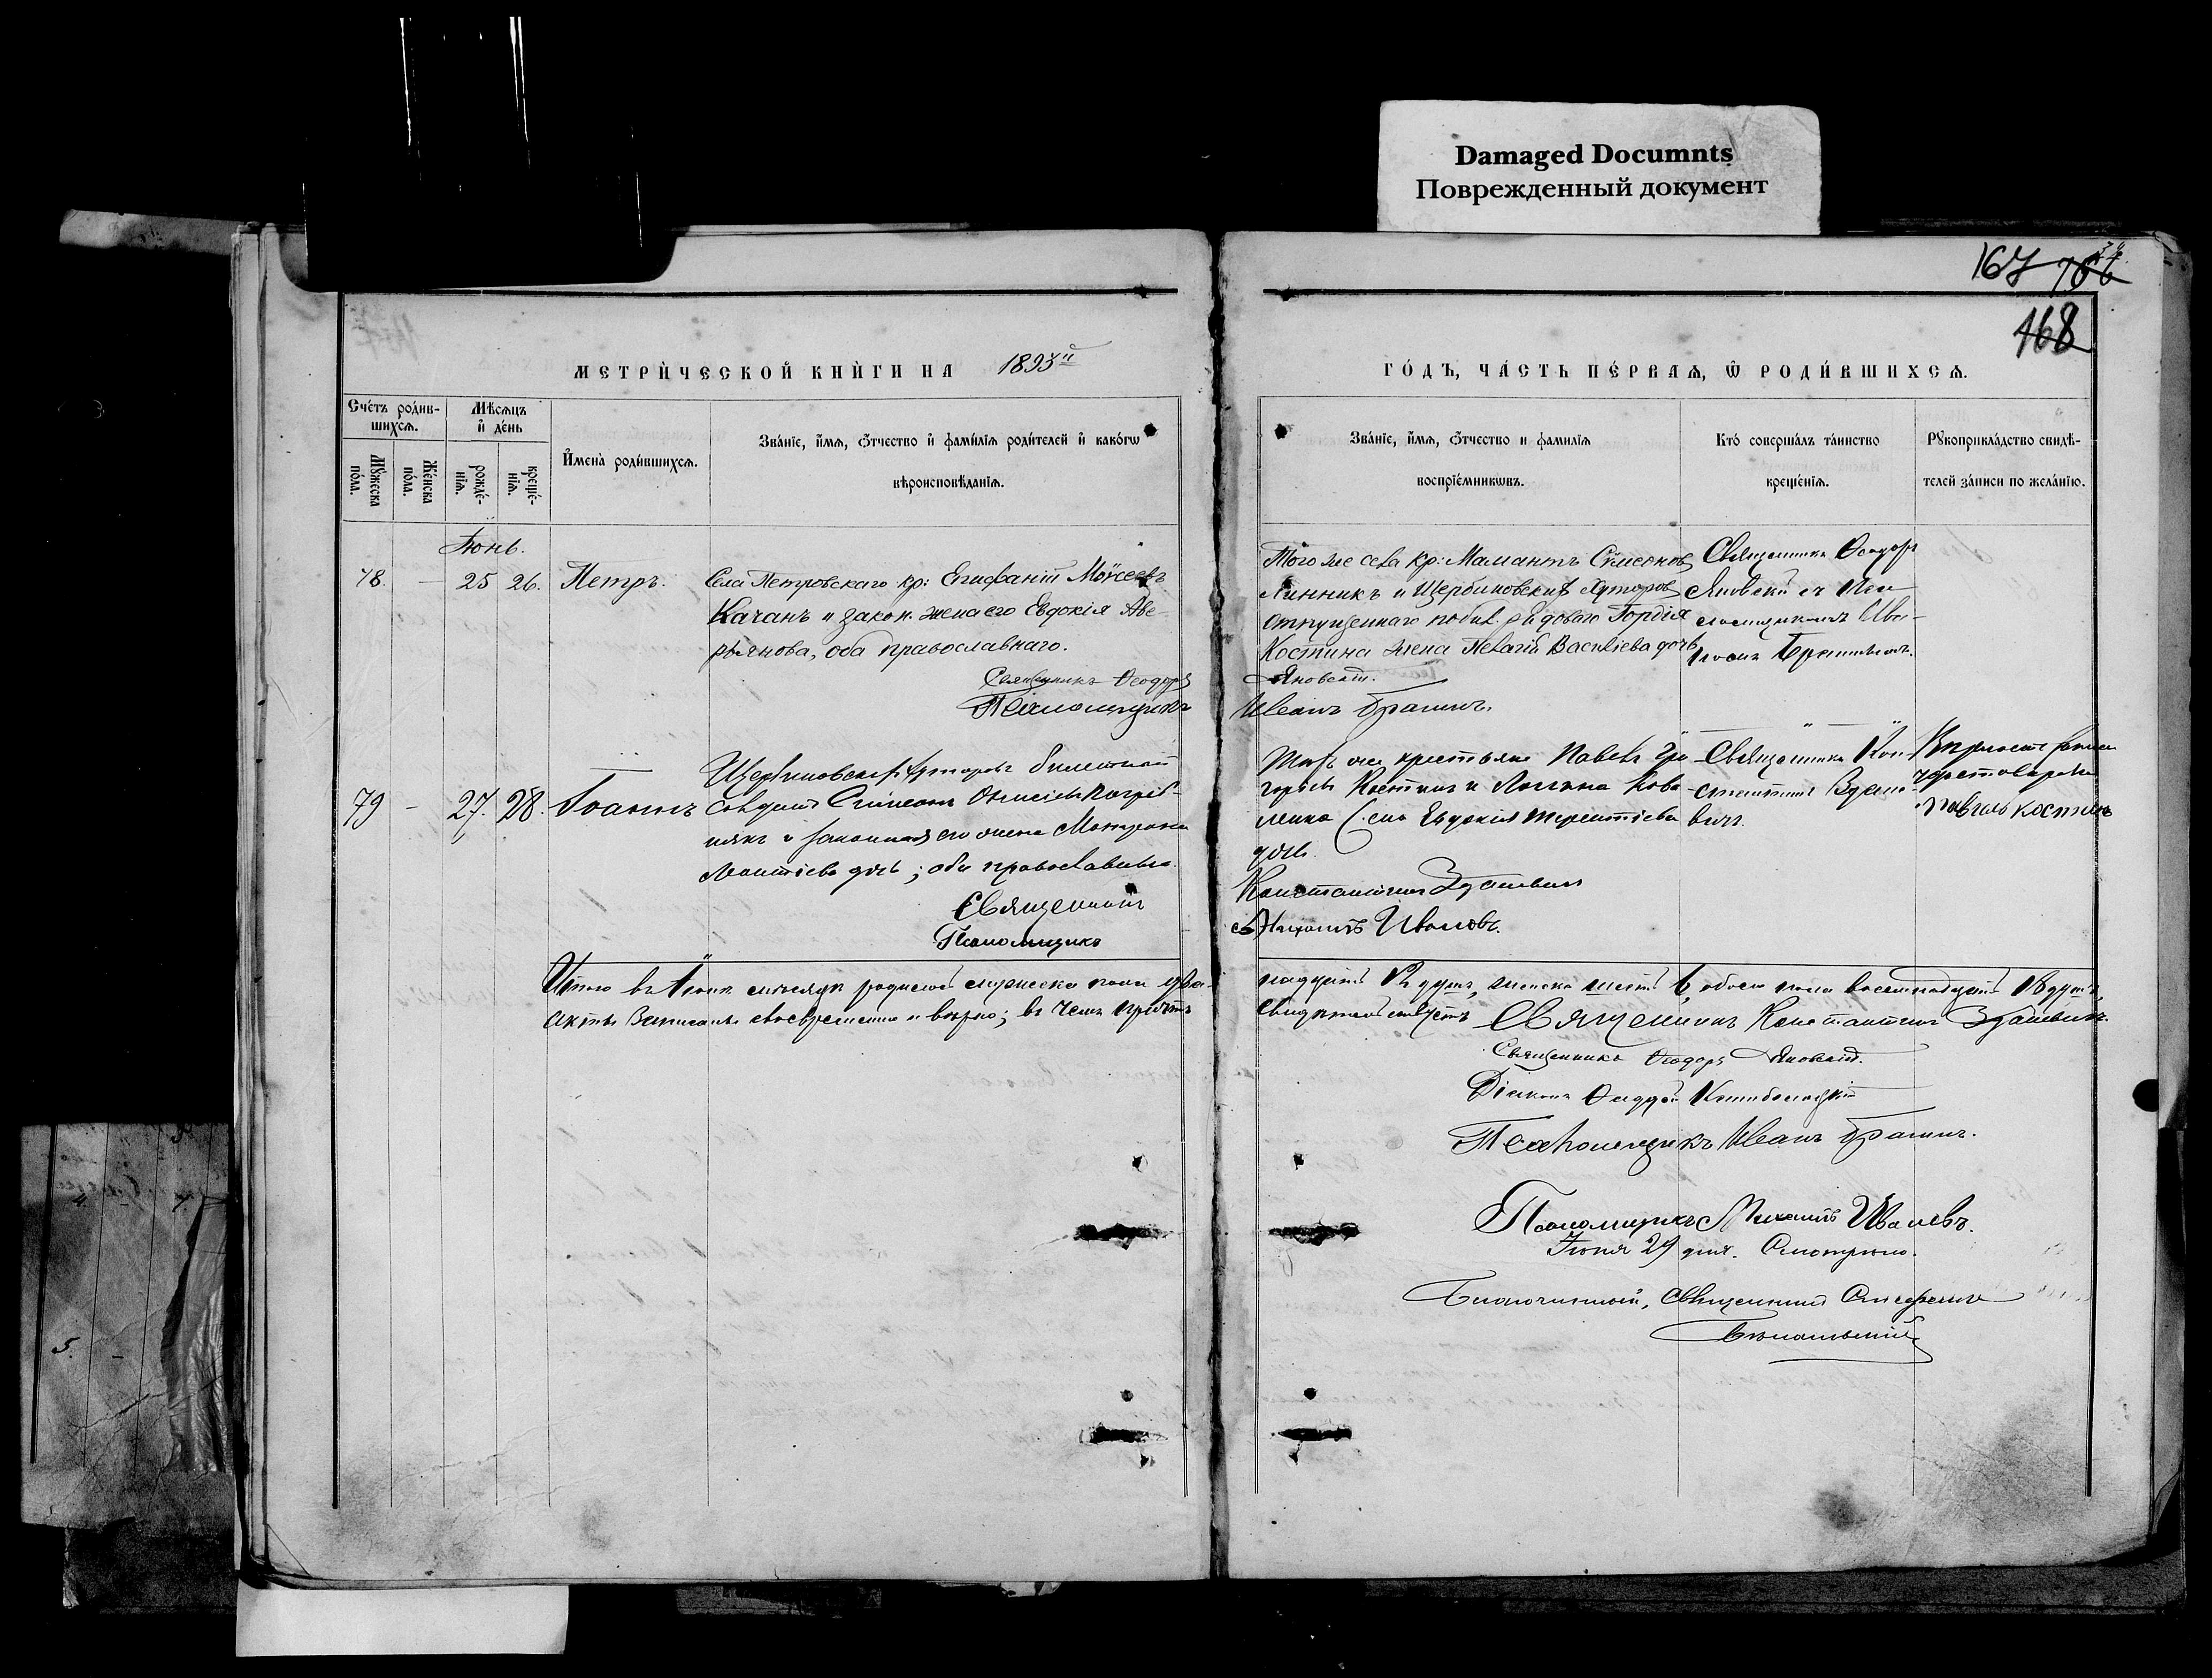 Damaged Documnts
Поврежденный документ
167 156
168
МЕТРИ́ЧЕСКОЙ КНИ́ГИ НА 1893й
ГО́ДЪ, ЧА́СТЬ ПЕ́РВАѦ, Ѽ РОДИ́ВШИХСѦ.
Сче́тъ роди́в-
шихсѧ.
Мꙋжеска по́ла.
Же́нска по́ла.
Мѣ́сѧцъ
и҆ де́нь
рожде́-
нїѧ.
креще́-
нїѧ.
И҆мена̀ роди́вшихсѧ.
Зва́нїе, и҆́мѧ, ѻ҆́тчество и҆ фами́лїѧ роди́телей и҆ како́гѡ
вѣроисповѣ́данїѧ.
Зва́нїе, и҆́мѧ, ѻ҆́тчество и фамилїѧ
воспрїе́мникѡвъ.
Кто̀ соверша́лъ та́инство
креще́нїѧ.
Рꙋкоприкла́дство свидѣ́-
телей за́писи по жела́нїю.
Іюнь.
78. — 25 26. Петръ.
Села Петровскаго кр: Епифаній Моѵсеевъ
Качанъ и закон. жена его Евдокія Аве-
рьянова, оба православнаго.
Священникъ Ѳеодоръ
Псаломщикъ
Того же села кр: Мамантъ Сѵмеоновъ
Линникъ и Щербиновскихъ Хуторовъ
отпущеннаго рядоваго Гордія
Костина жена Пелагія Васильева дочь
Яновскій.
Иванъ Брагинъ.
Священникъ Ѳеодоръ
Яновскій съ Пса-
ломщикомъ Ива-
номъ Брагинымъ.
79 — 27. 28. Іоаннъ
Щербиновскихъ Хуторовъ билетный
Солдатъ Симеонъ Погріб-
някъ и законная его жена Матрона
Леонтіева дочь; оба православные.
Священникъ
Псаломщикъ
Тѣхъ же крестьяне Павелъ Гри-
горьевъ Костинъ и Логгина Кова-
ленка Евдокія Терентіева
дочь.
Константинъ Здановичъ
Михаилъ Ивановъ.
Священникъ Кон-
стантинъ Здано-
вичъ.
Павелъ Костинъ
Итого въ Іюнѣ мѣсяцѣ родилось мужеска пола два-
надцать 12 душъ, женска шесть 6, обоего пола восемнадцать 18 душъ,
Акты записаны своевременно и вѣрно; въ чемъ причтъ
свидѣтельствуетъ Священникъ Константинъ Здановичъ.
Священникъ Ѳеодоръ Яновскій.
Діаконъ
Псаломщикъ Иванъ Брагинъ.
Псаломщикъ Михаилъ Ивановъ.
Іюня 29 дня. Смотрѣлъ.
Благочинный, Священникъ